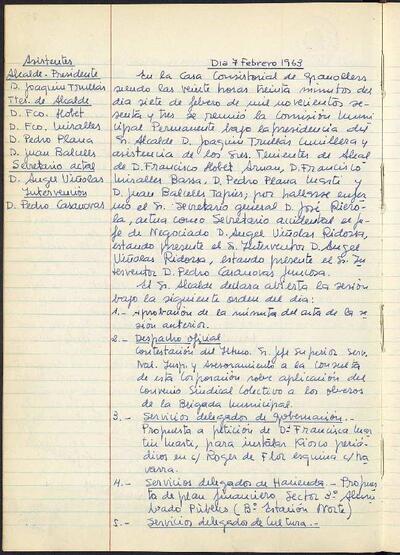 Asistentes
Alcalde-Presidente
D. Joaquin Trullás
Ttes. de Alcalde
D. Fco. Llobet
D. Fco. Miralles
D. Pedro Plana
D. Juan Balcells
Secretario actal
D. Angel Viñolas
Intervención
D. Pedro Casanovas
Dia 7 Febrero 1963
En la Casa Consistorial de Granollers
siendo las veinte horas treinta minutos del
dia siete de febrero de mil novecientos se-
senta y tres se reunió la Comisión Muni
cipal Permanente bajo la presidencia del
Sr. Alcalde D. Joaquin Trullás
asistencia de los Sres. Tenientes de Alcal
de D. Francisco Llobet Arnan, D. Francisco
Miralles Bassa, D. Pedro Plana Marti y
D. Juan Balcells Tapies; por hallarse enfer
mo el Sr. Secretario general D. José Riero-
la, actua como Secretario accidental el je-
fe de Negociado D. Angel Viñolas Ridorsa,
estando presente el Sr. Interventor D. Angel
Viñolas Ridorsa, estando presente el Sr. In
terventor D. Pedro Casanovas Juncosa.
El Sr. Alcalde declara abierta la sesión
bajo la siguiente orden del dia:
1.- Aprobación de la minuta del acta de la se
sión anterior.
2.- Despacho oficial
Contestación del Iltmo. Sr. Jefe Superior Serv.
Nal. Insp. y Asesoramiento a la Consulta
de esta Corporación sobre aplicación del
Convenio Sindical Colectivo a los obreros
de la Brigada Municipal.
3.- Servicios delegados de Gobernación.-
Propuesta a petición de Dª Francisca Mar
tin Marti, para instalar Kiosco perió-
dicos en c/ Roger de Flor esquina c/ Na
varra.
4.- Servicios delegados de Hacienda.- Propues
ta de plan financiero Sector 3º Alum
brado Público (Bº Estación Norte)
5.- Servicios delegados de Cultura.-